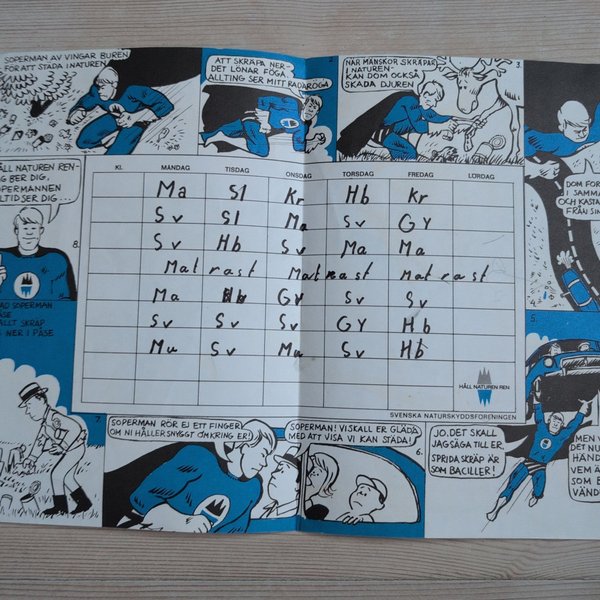 SOPERMAN AV VINGAR BUREN
FÖR ATT STÄDA I NATUREN
ATT SKRÄPA NER-
DET LÖNAR FÖGA
ALLTING SER MITT RADARÖGA
NÄR MÄNSKOR SKRÄPAR
I NATUREN-
KAN DOM OCKSÅ
SKADA DJUREN
3.
DOM FOR
I SAMMA
OCH KASTA
FRÅN SIN
HÅLL NATUREN REN-
BER DIG,
SOPERMANNEN
ALLTID SER DIG...
8.
SOPERMAN
PÅSE
ALLT SKRÄP
NER I PÅSE
KL. MÅNDAG TISDAG ONSDAG TORSDAG FREDAG LÖRDAG
Ma Sl Kr Hb Kr
Sv Sl Ma Sv GY
Sv Hb Sv Ma Ma
Mat rast Mat rast mat rast
Ma Hb Gy Sv Sv
Sv Sv Sv GY Hb
Mu Sv Mu Sv Hb
HÅLL NATUREN REN
SVENSKA NATURSKYDDSFÖRENINGEN
7.
SOPERMAN RÖR EJ ETT FINGER
OM NI HÅLLER SNYGGT OMKRING ER!
SOPERMAN! VI SKALL ER GLÄDA
MED ATT VISA VI KAN STÄDA!
6.
5.
JO, DET SKALL
JAG SÄGA TILL ER,
SPRIDA SKRÄP ÄR
SOM BACILLER!
MEN
DET NU
HÄND
VEM Ä
SOM
VÄND